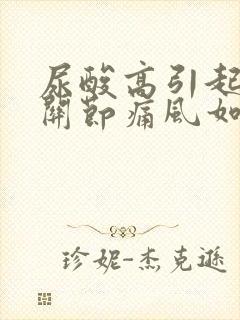 尿酸高引起
關節痛風如
珍妮-杰克遜